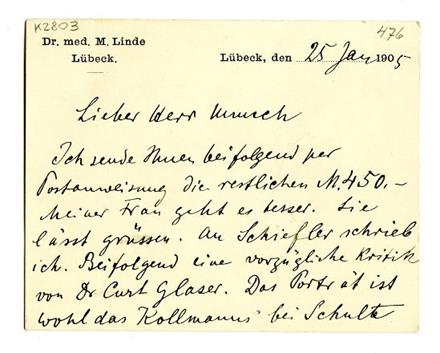 K2803
476
Dr. med. M. Linde
Lübeck.
Lübeck, den 25 Jan 1905
Lieber Herr Munch
Ich sende Ihnen beifolgend per
Postanweisung die restlichen M. 450.-
Meiner Frau geht es besser. Sie
lässt grüssen. An Schiefler schrieb
ich. Beifolgend eine vorzügliche Kritik
von Dr Curt Glaser. Das Porträt ist
wohl das Kollmanns bei Schulte